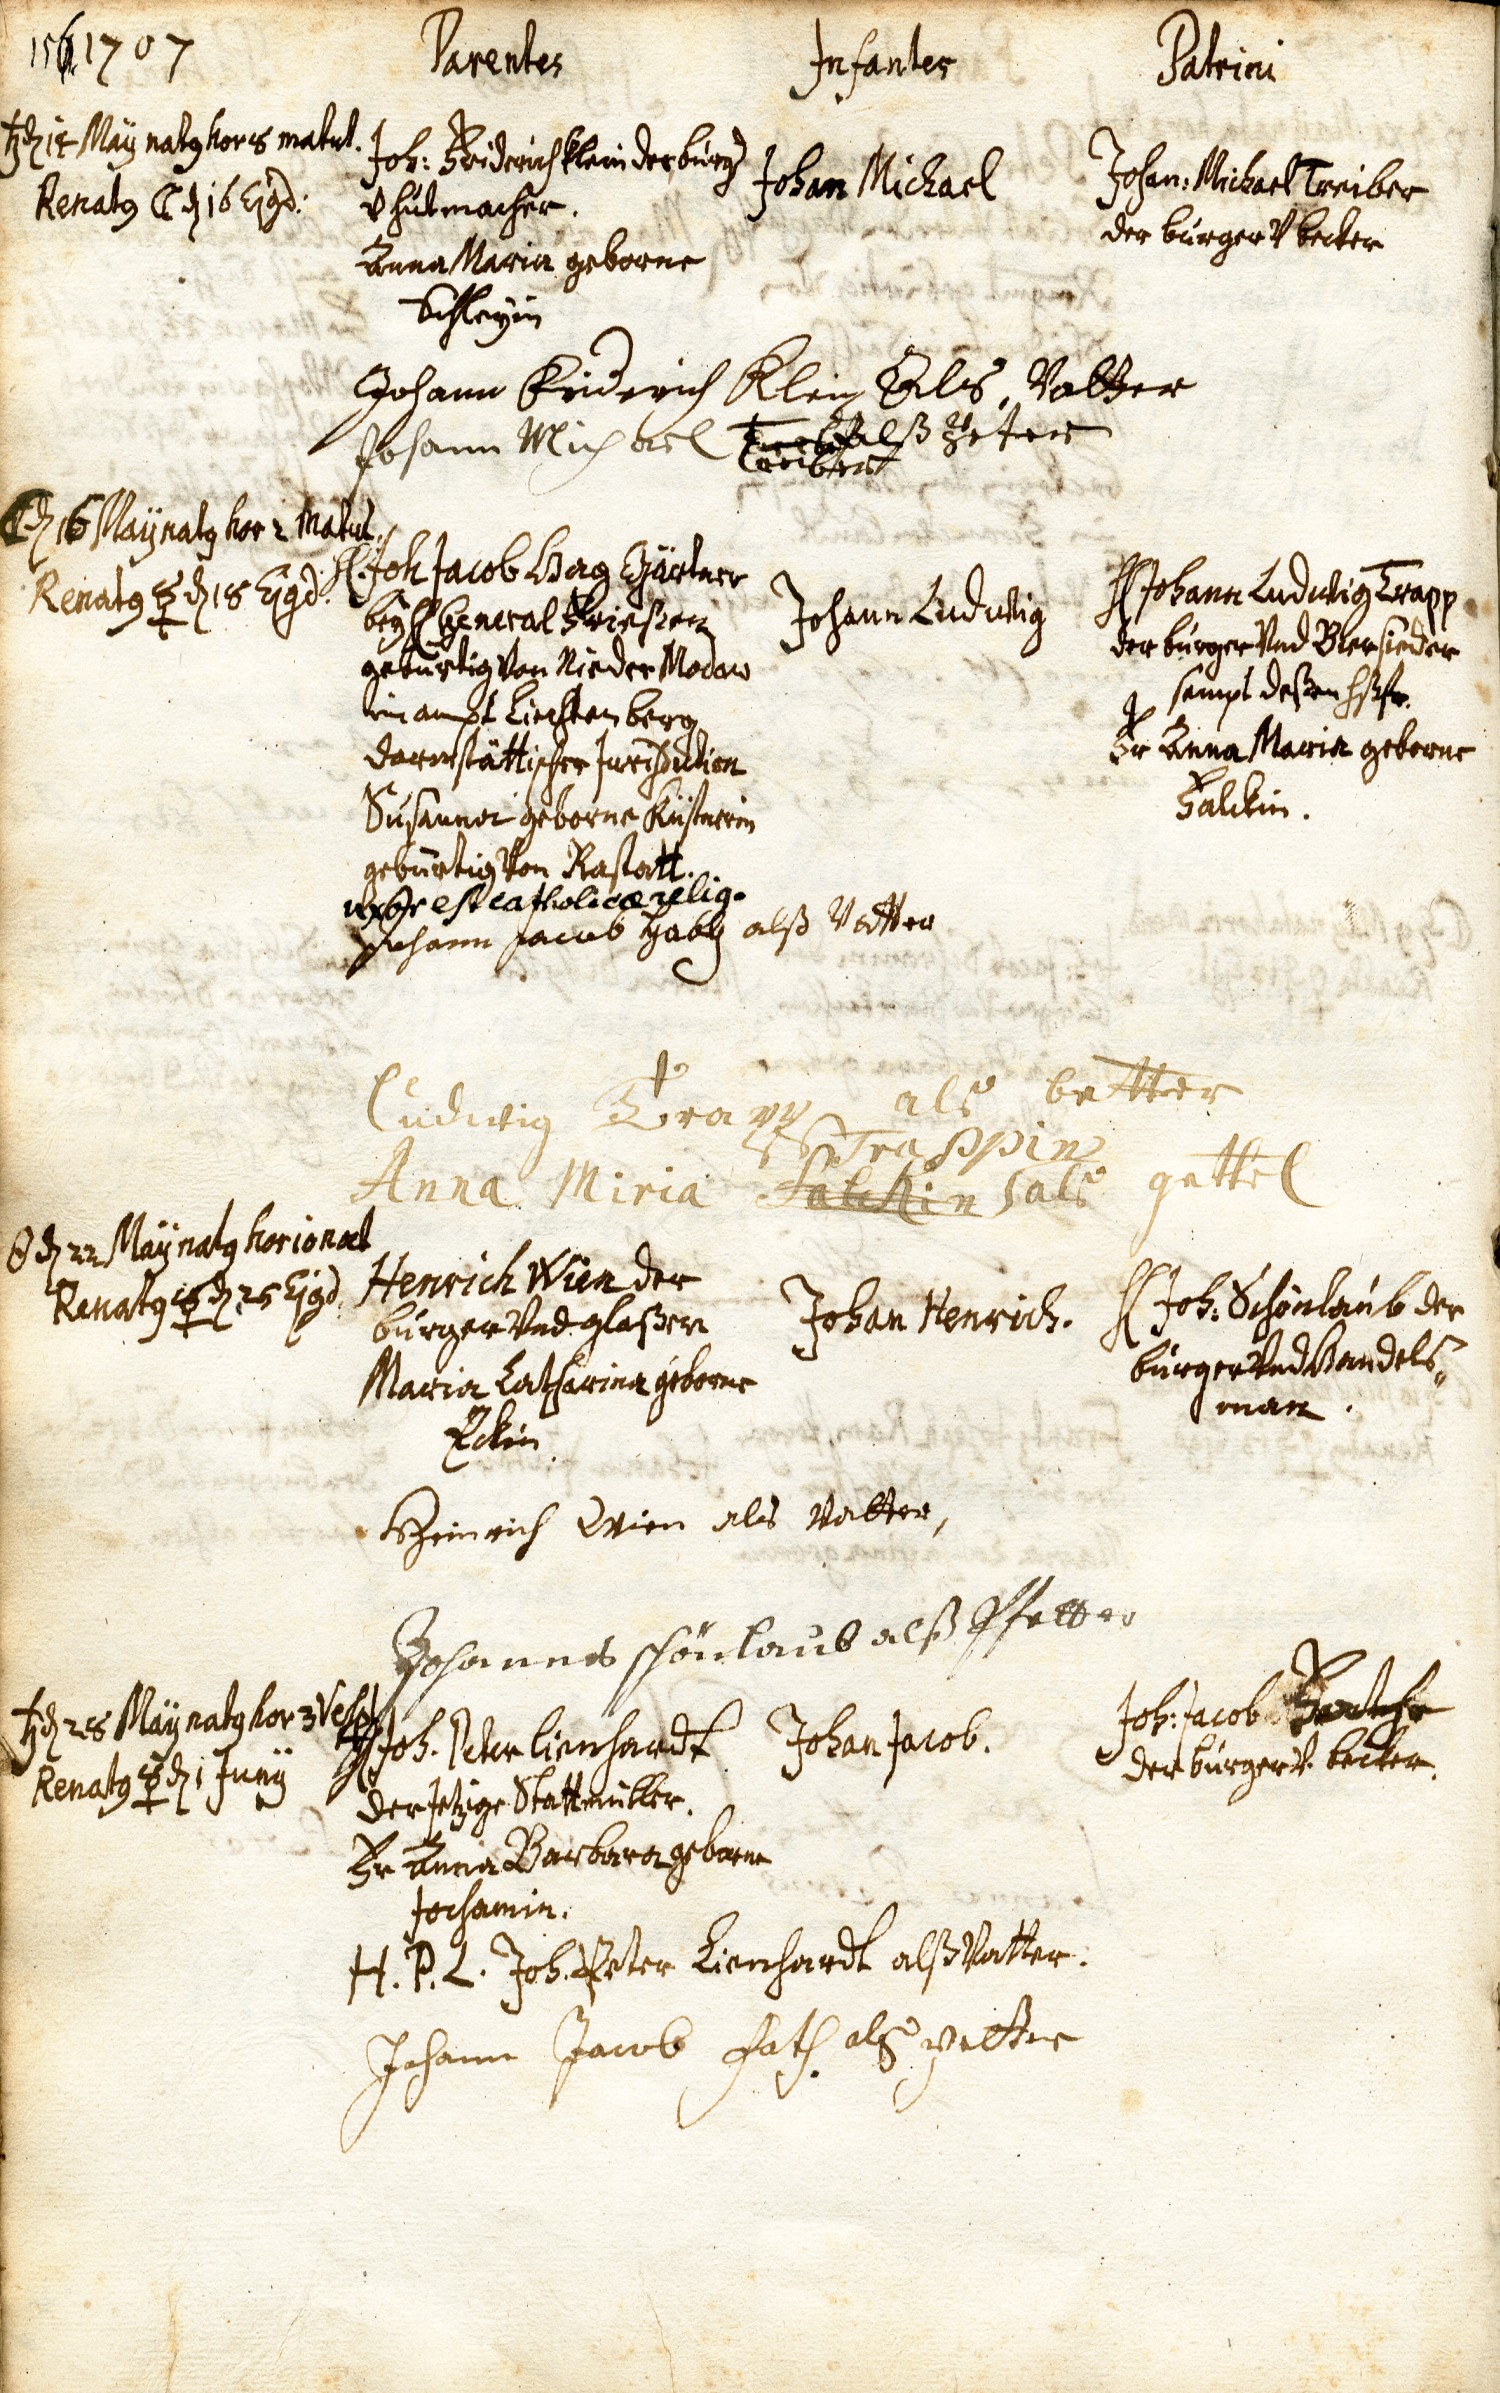 156. 1707 Parentes Infantes Patrini
♄ d 14 Maÿ natq hor 5 matut.
Renatq ☾ d 16 Ejqd:
Joh: Friderich Klein der burgr
v hutmacher.
Anna Maria geborne
Schleyin
Johan Michael
Johan: Michael Treiber
der burger v becker
Johann Friderich Klein Als Vatter
Johann Michael Treiber alß Peter
☾ d 16 Maÿ natq hor 2 Matut.
Renatq ☿ d 18 Ejqd.
H. Joh Jacob Hag Gärtner
beÿ H General Frießen
gebürtig von Nieder Modaw
im ampt Liechtenberg
darmstättischer Jurisdiction
Susanna geborne Küstnerin
gebürtig von Rastatt.
uxor est catholicæ relig.
Johann Ludwig
H Johann Ludwig Trapp
der burger vnd Biersieder
sampt deßen hßfr.
Fr Anna Maria geborne
Falckin.
Johann Jacob Hag alß Vatter
Ludwig Trapp als better
Trappin
Anna Miria Falckin als gettel
☉ d 22 Maÿ natq hor 10 noct
Renatq ☿ d 25 Ejqd.
Henrich Wien der
burger vnd glaßer
Maria Catharina geborne
Eckin
Johan Henrich.
H Joh: Schönlaub der
burger vnd Handels
man.
Heinrich Wien als Vatter,
Johannes schönlaub alß Pfetter
♄ d 28 Maÿ natq hor 3 Vesp
Renatq ☿ d 1 Junÿ
H Joh. Peter Lienhardt
der Jetzige Stattmüller.
Fr Anna Barbara geborne
Jochamin.
Johan Jacob.
Joh: Jacob
der burger v. becker.
H. P. L. Joh. Peter Lienhardt alß Vatter.
Johann Jacob Fath als petter